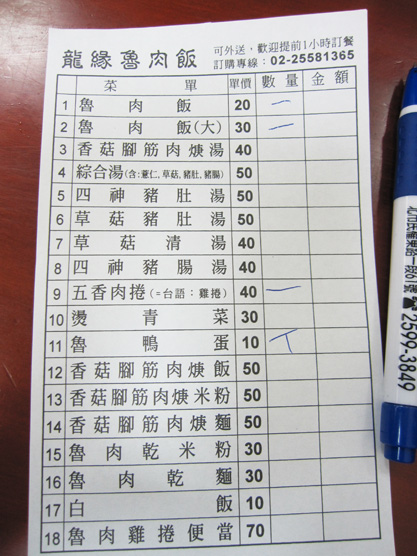 龍緣魯肉飯 可外送，歡迎提前1小時訂餐
訂購專線：02-25581365
菜單 單價 數量 金額
1 魯肉飯 20 一
2 魯肉飯(大) 30 一
3 香菇腳筋肉焿湯 40
4 綜合湯(含:薏仁,草菇,豬肚,豬腸) 50
5 四神豬肚湯 50
6 草菇豬肚湯 50
7 草菇清湯 40
8 四神豬腸湯 40
9 五香肉捲(=台語：雞捲) 40 一
10 燙青菜 30
11 魯鴨蛋 10 T
12 香菇腳筋肉焿飯 50
13 香菇腳筋肉焿米粉 50
14 香菇腳筋肉焿麵 50
15 魯肉乾米粉 30
16 魯肉乾麵 30
17 白飯 10
18 魯肉雞捲便當 70
2599-3849